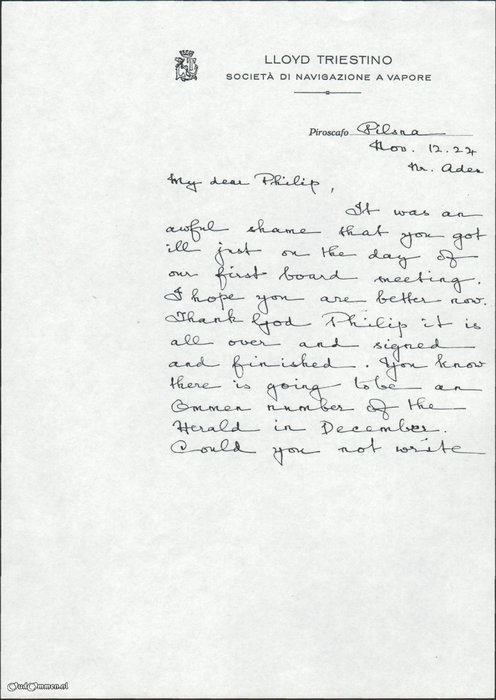 LLOYD TRIESTINO
SOCIETÀ DI NAVIGAZIONE A VAPORE
Piroscafo Pilsna
Nov. 12.24
Nr. Aden
My dear Philip,
It was an
awful shame that you got
ill just on the day of
our first board meeting.
I hope you are better now.
Thank God Philip it is
all over and signed
and finished. You know
there is going to be an
Ommen number of the
Herald in December.
Could you not write
OudOmmen.nl